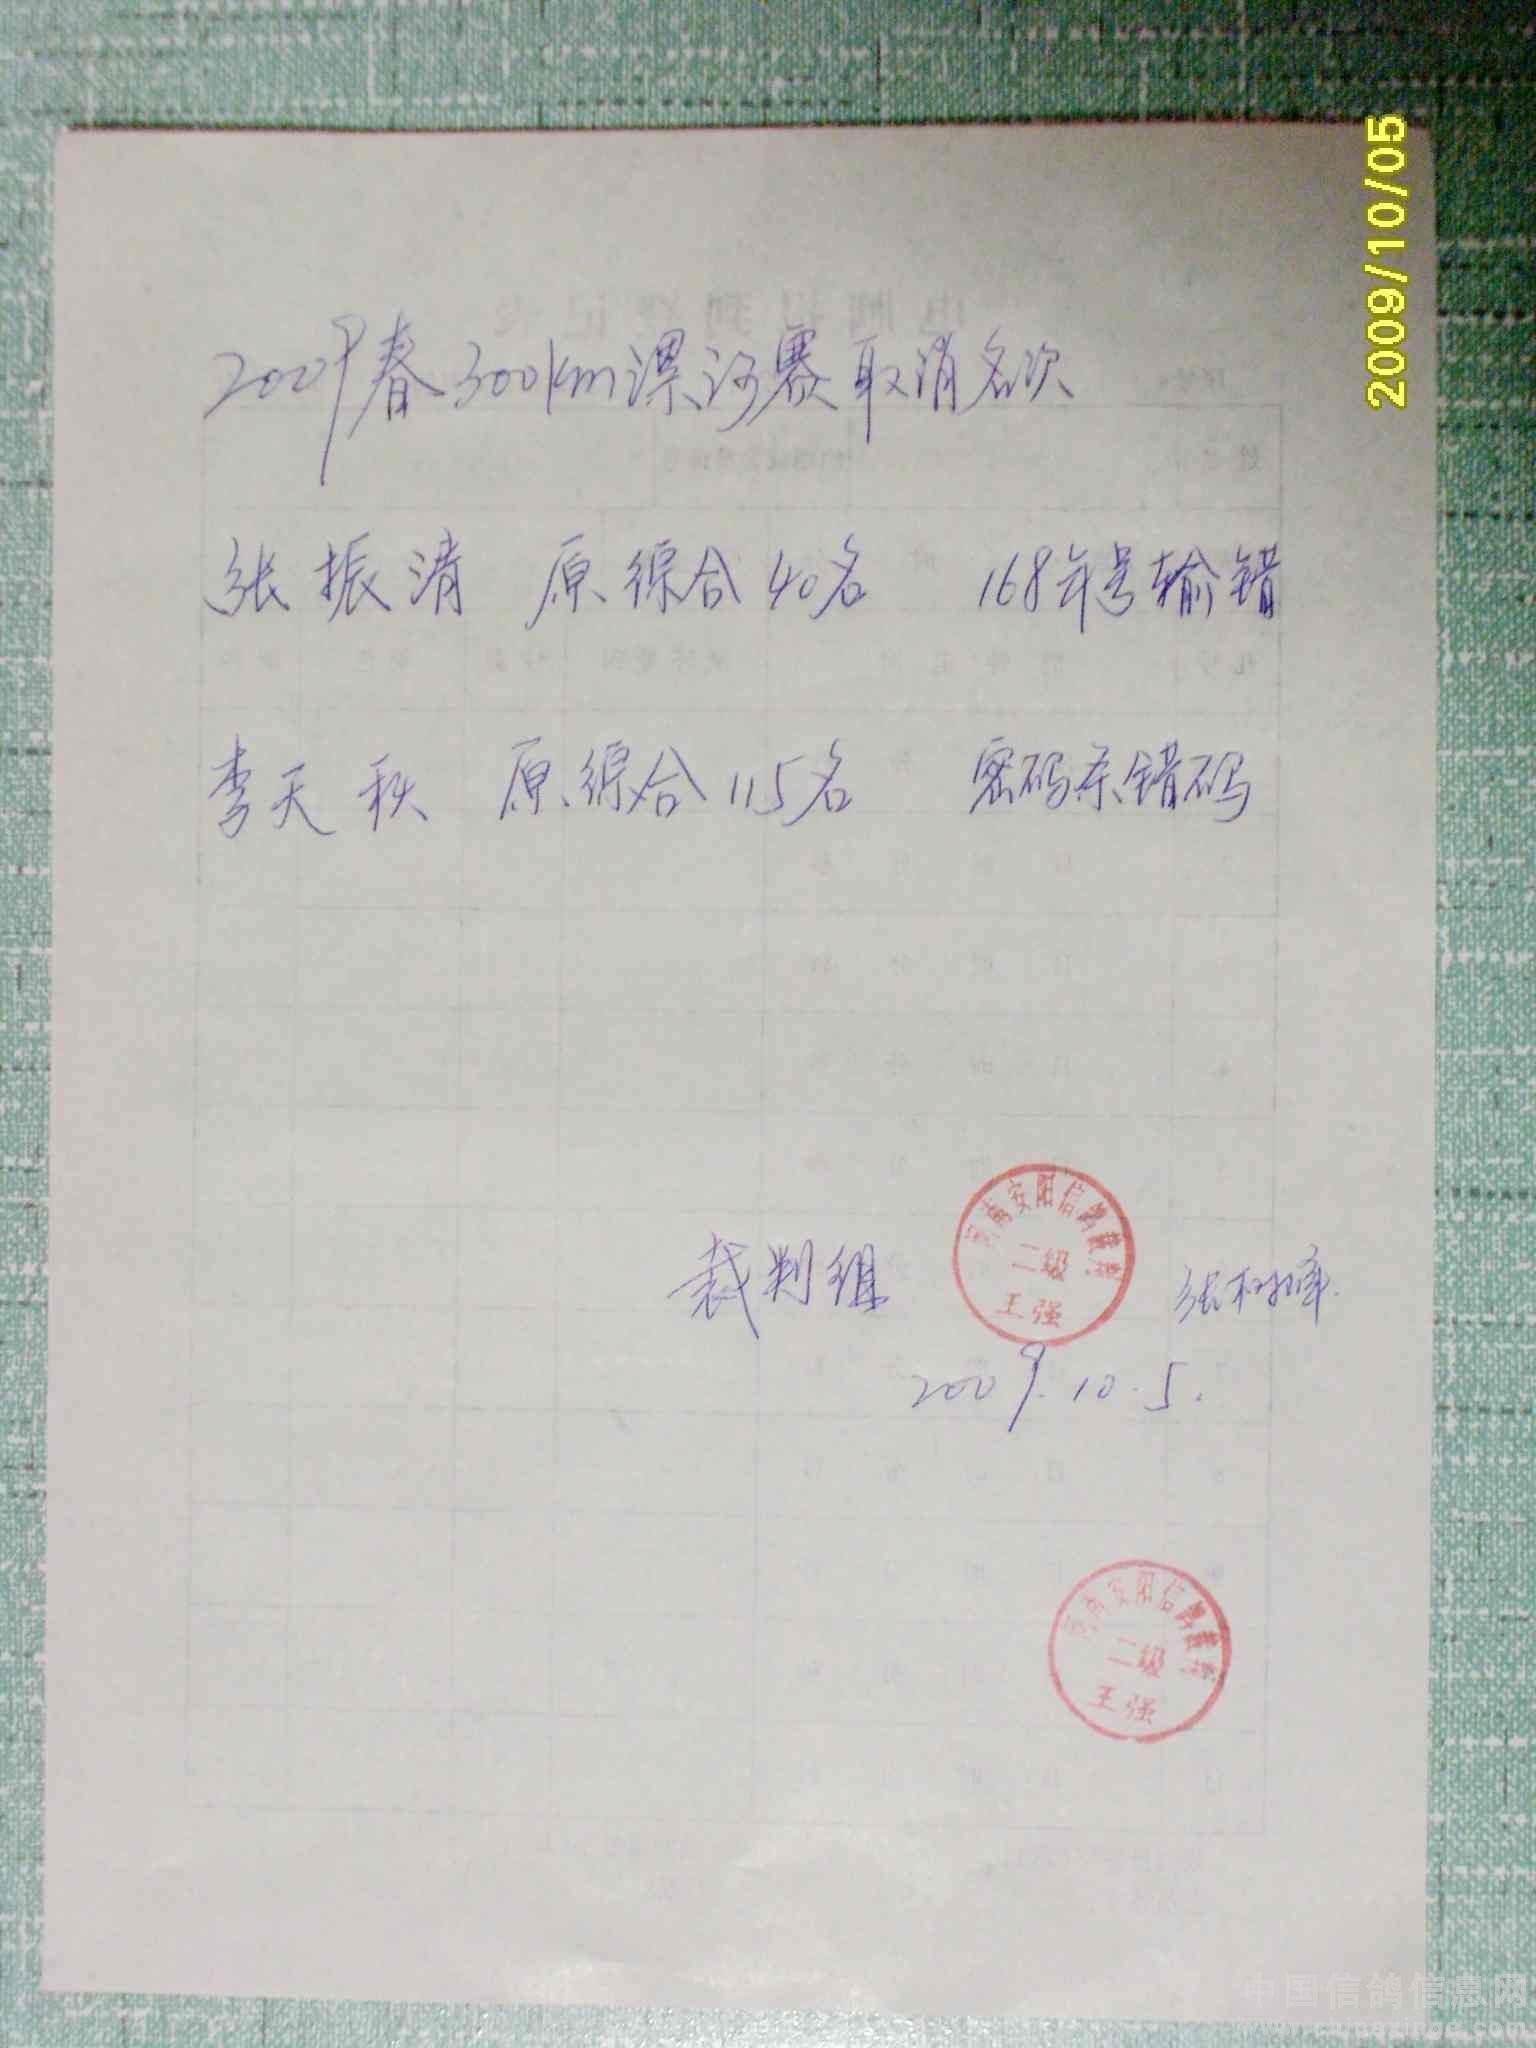 2009/10/05
2009春300km漯河赛取消名次
张振清 原综合40名 168年号输错
李天秋 原综合115名 密码条错码
裁判组
河南安阳信鸽裁判
二级
王强
张树峰.
2009.10.5.
河南安阳信鸽裁判
二级
王强
中国信鸽信息网